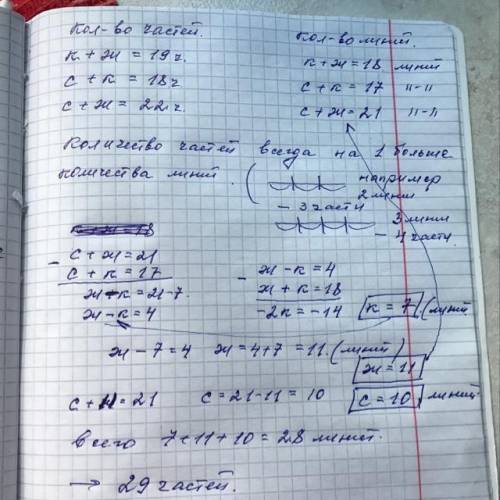 Кол-во частей.
к + ж = 19 ч.
с + к = 18 ч.
с + ж = 22 ч.
Кол-во линий.
к + ж = 18 линий
с + к = 17 п-п
с + ж = 21 п-п
Количество частей всегда на 1 больше
количества линий. ( например
2 линии
- 3 части
3 линии
- 4 части.
с + ж = 21
- с + к = 17
ж - к = 21-7.
ж - к = 4
- ж - к = 4
ж + к = 18
-2к = -14
к = 7 (линий)
ж - 7 = 4 ж = 4+7 = 11. (линий)
ж = 11
с + 11 = 21 с = 21-11 = 10 с = 10 линий
всего 7 + 11 + 10 = 28 линий.
→ 29 частей.